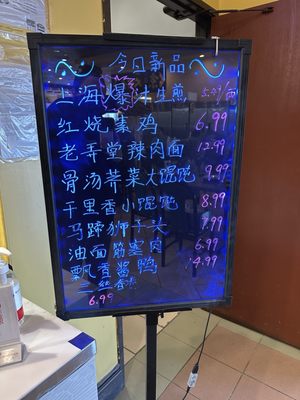 今日新品
上海爆汁生煎 5.49/两
红烧素鸡 6.99
老弄堂辣肉面 12.99
骨汤荠菜大馄饨 9.99
千里香小馄饨 8.99
马蹄狮子头 7.99
油面筋塞肉 6.99
飘香酱鸭 4.99
三丝春卷
6.99